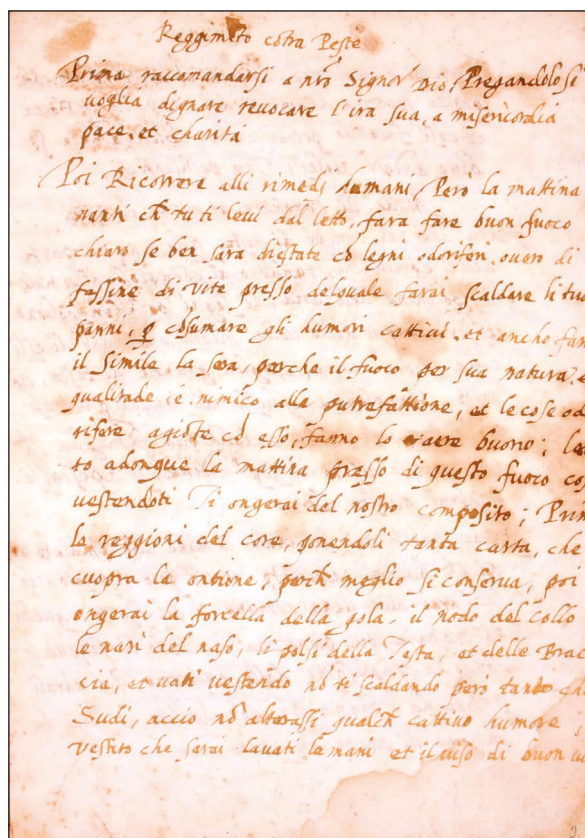 Reggimēto cōtra Peste
Prima raccomandarsi a nrō Signor Dio, Pregandolo si
voglia dignare revocare l'ira sua, a misericordia
pace, et charità
Poi Ricorrere alli rimedj humani, Però la mattina
nanti ch̄ tu ti levi dal letto, fara fare buon fuoco
chiaro se ben sara d'estate cō legni odoriferi, overo di
fassine di vite presso delquale farai scaldare li tuoi
panni, ꝑ cōsumare gli humori cattivi, et ancho fara
il simile la sera, perche il fuoco per sua natura, e
qualitade è nimico alla putrefattione, et le cose odo
rifere agiōte cō esso, fanno lo aere buono; le
to adonque la mattina presso di questo fuoco co
vestendoti Ti ongerai del nostro composito; Prim
le reggioni del core, ponendoli tanta carta, che
cuopra la ontione, perch̄ meglio si conserva, poi
ongerai la forcella della gola, il nodo del collo
le nari del naso, li polsi della Testa, et delle Brac
cia, et vati vestendo nō ti scaldando però tanto ch
Sudi, acciò nō alterassi qualch̄ cattivo humore
vestito che sarai lavati le mani et il viso di buon vi